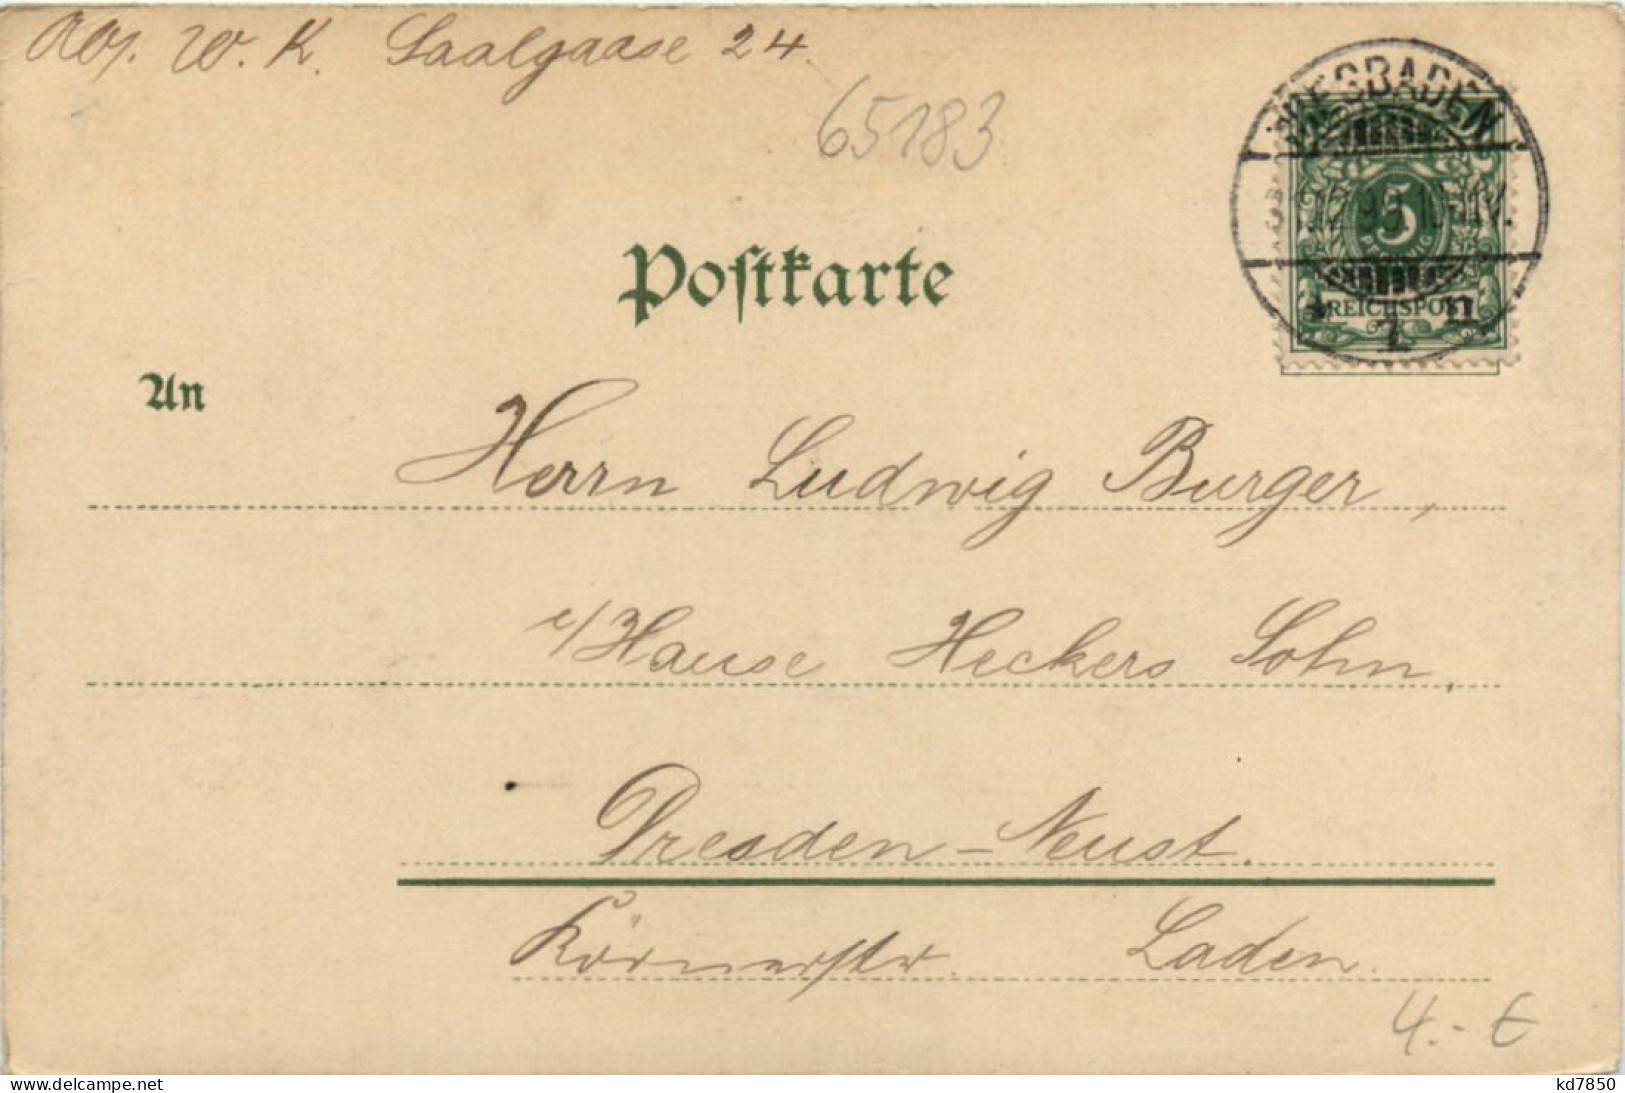 Abs. W. K. Saalgasse 24.
65183
WIESBADEN
5
PFENNIG
REICHSPOST
Postkarte
An
Herrn Ludwig Burger,
c/Hause Heckers Sohn,
Dresden-Neust.
Körnerstr. Laden.
4.- €
www.delcampe.net
kd7850